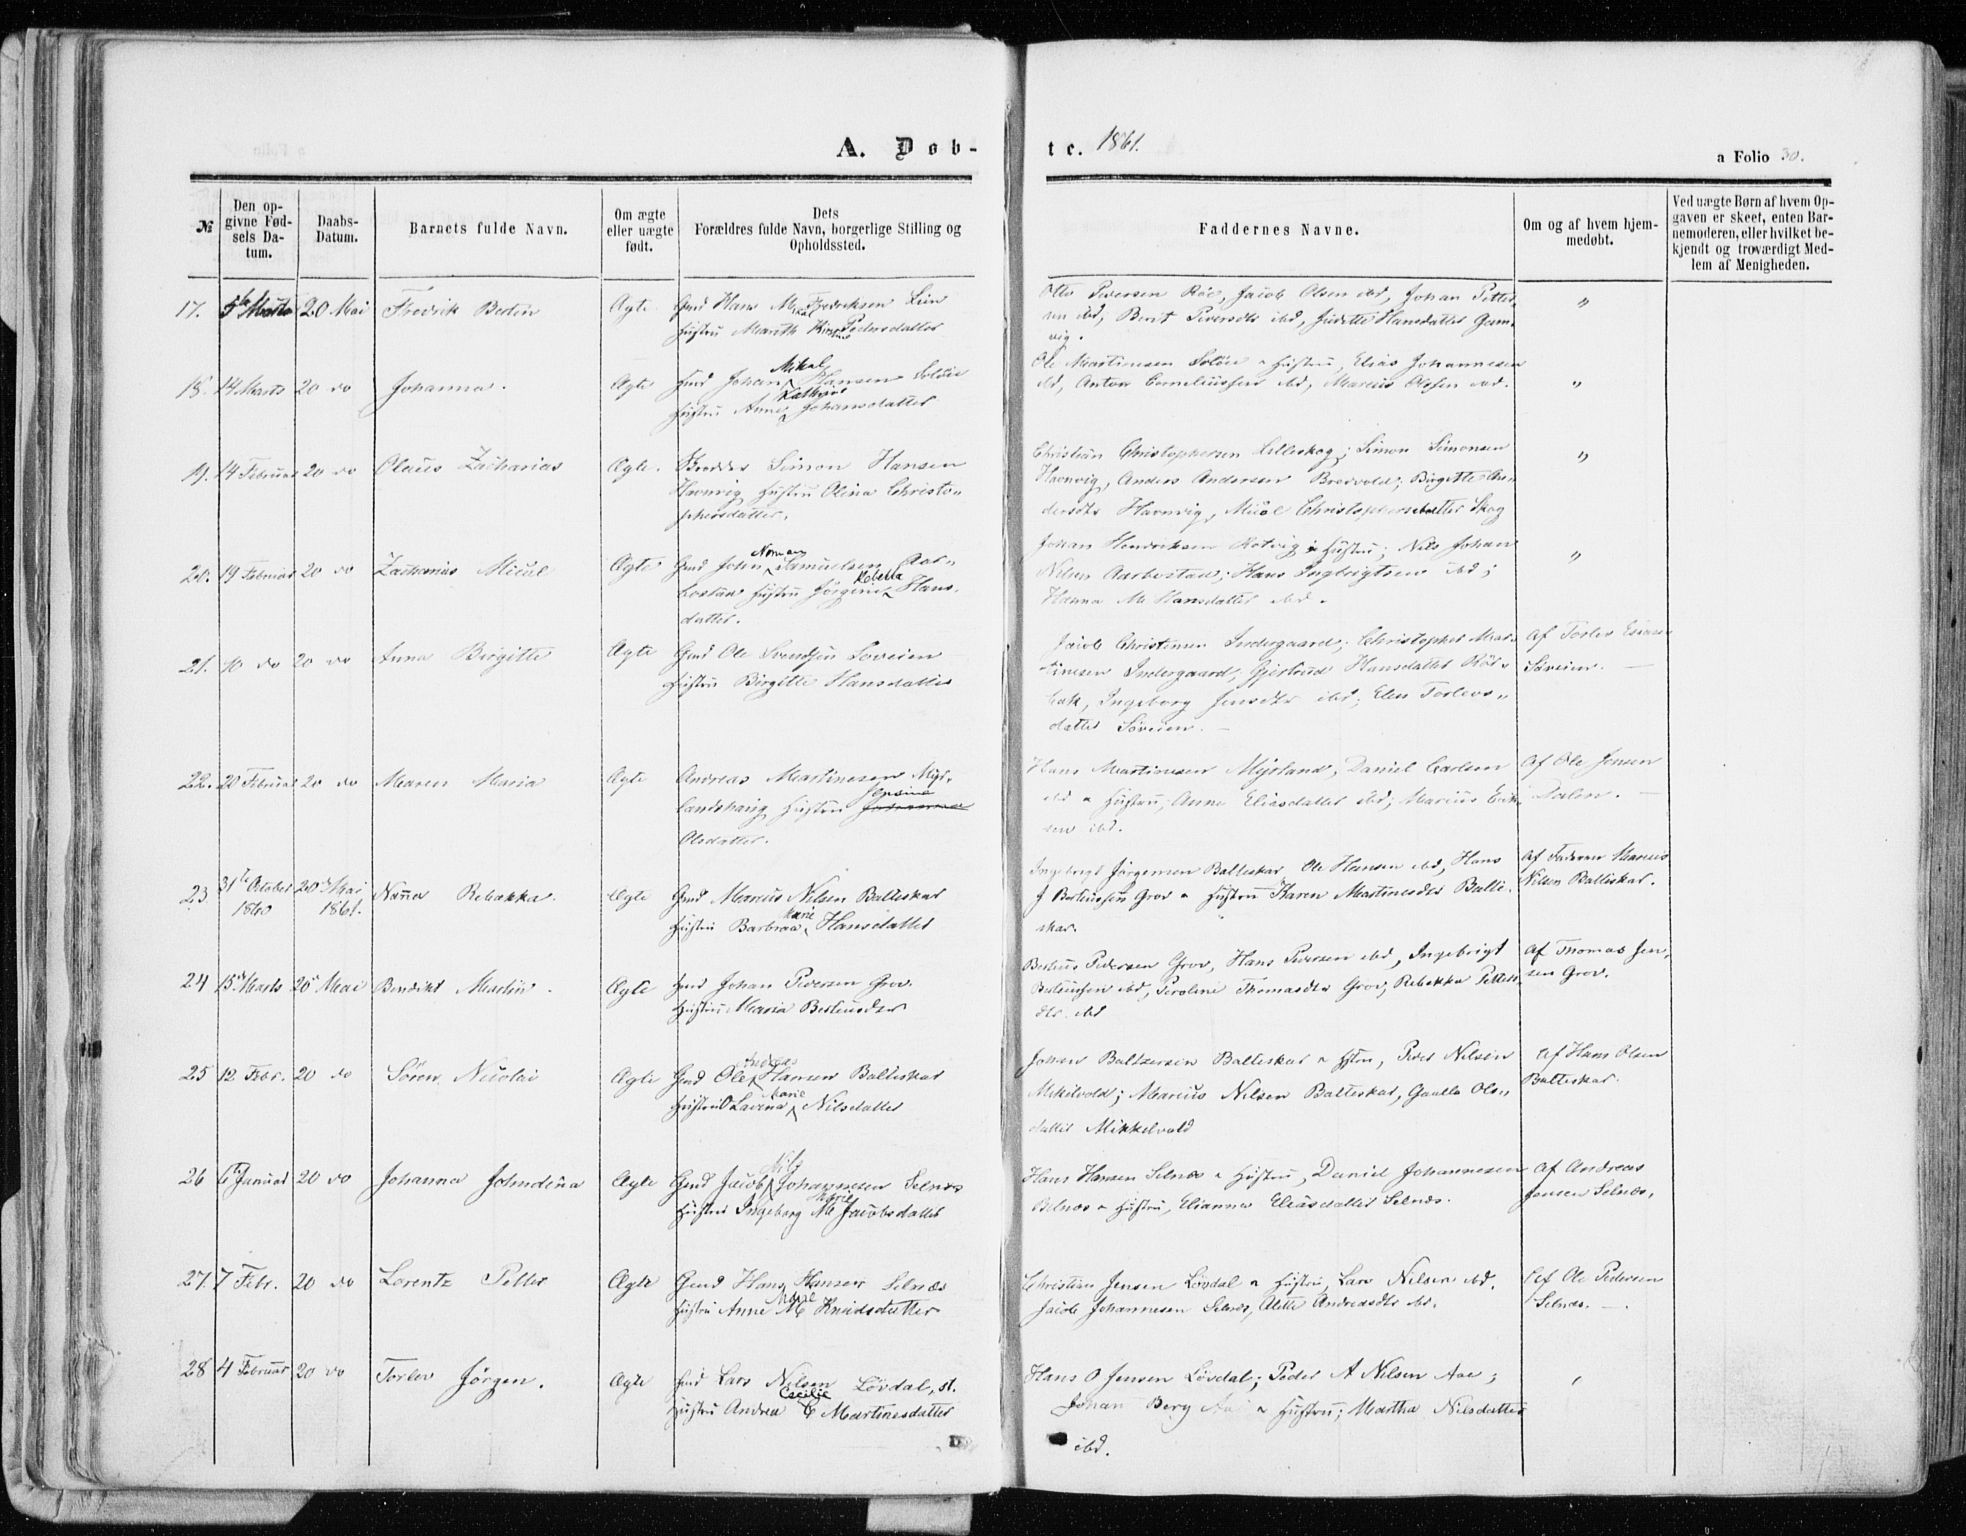 A. Døb-
te. 1861.
a Folio 30.
№
Den opgivne Fødsels Datum.
Daabs-Datum.
Barnets fulde Navn.
Om ægte eller uægte født.
Dets Forældres fulde Navn, borgerlige Stilling og Opholdssted.
Faddernes Navne.
Om og af hvem hjemmedøbt.
Ved uægte Børn af hvem Opgaven er skeet, enten Barnemoderen, eller hvilket bekjendt og troværdigt Medlem af Menigheden.
17. 5te Marts 20 Mai Fredrik Bertin Ægte Gmd Hans Mikal Fredriksen Lein
Hustru Marith Kirstine Pedersdatter
Otto Pedersen Röe, Jacob Olsen ibd, Johan Petter
sen ibd, Berit Pedersdtr ibd, Judithe Hansdatter Gam
vig.
"
18. 14 Marts 20 do Johanna. Ægte Hmd Johan Mikal Hansen Soløie
Hustru Anne Kathrine Johansdatter
Ole Martinsen Soløie & Hustru, Elias Johannesen
ibd, Anton Corneliussen ibd, Marcus Olsen ibd.
"
19. 14 Februar 20 do Olaus Zacharias Ægte. Brødder Simon Hansen
Havnvig Hustru Olina Christo„
phersdatter.
Christian Christophersen Lilleskog; Simon Simonsen
Havnvig, Anders Andersen Bredvold; Birgitte An
dersdtr Havnvig, Micol Christophersdatter Skog
"
20. 19 Februar 20 do Zacharias Micol Ægte Gmd John Norman Samuelsen Aar„
bostad Hustru Jørgine Rebekka Hans„
datter.
Johan Henriksen Rotvig & Hustru; Nils Johan
Nilsen Aarbostad; Hans Ingbrigtsen ibd;
Hanna M Hansdatter ibd.
"
21. 10 do 20 do Anna Birgitte Ægte Gmd Ole Svendsen Søveien
Hustru Birgitte Hansdatter
Jacob Christensen Indergaard; Christopher Mar„
tinesen Indergaard, Gjertrud Hansdatter Rös„
bak, Ingeborg Jensdtr ibd; Elen Torlevs„
datter Søveien.
Af Torlev Esiasen
Søveien.
22. 20 Februar 20 do Maren Maria Ægte Andreas Martinesen Myr„
landshaug Hustru Jensine
Olsdatter.
Hans Martinesen Myrland, Daniel Carlsen
ibd & Hustru, Anne Eliasdatter ibd; Marius Erik
sen ibd.
Af Ole Jensen
Dalen.
23. 31te October 1860 20de Mai 1861. Nanna Rebekka. Ægte Gmd Marcus Nilsen Balteskar
Hustru Barbraa Marie Hansdatter
Ingebrigt Jørgensen Balteskar Ole Hansen ibd, Hans
J Berteussen Grov & Hustru Karen Martinesdtr Balte„
skar.
Af Faderen Marcus
Nilsen Balteskar.
24 15de Marts 20 Mai Bendikt Martin. Ægte Hmd Johan Pedersen Grov.
Hustru Maria Berteusdtr
Berteus Pedersen Grov, Hans Pedersen ibd, Ingebrigt
Berteussen ibd, Peroline Thomasdtr Grov; Rebekka Petters
dtr ibd
Af Thomas Jen„
sen Grov.
25 12 Febr. 20 do Søren Nicolai Ægte Gmd Ole Andreas Hansen Balteskar
Hustru O Lavina Marie Nilsdatter
Johan Baltzersen Balteskar & Hstru, Peder Nilsen
Mikelvold; Marcus Nilsen Balteskar, Gaallo Ols„
datter Mikkelvold
Af Hans Olsen
Balteskar.
26 6te Januar 20 do Johanna Johndina Ægte Gmd Jacob Nils Johannesen Selnæs
Hustru Ingeborg M Marie Jacobsdatter
Hans Hansen Selnæs & Hustru, Daniel Johannesen
Selnæs & Hustru, Elianna Eliasdatter Selnæs.
Af Andreas
Jensen Selnæs.
27. 7 Febr. 20 do Lorentz Petter Ægte Gmd Hans Hansen Selnæs
Hustru Anne M Marie Knudsdatter
Christian Jensen Løvdal & Hustru, Lars Nilsen ibd.
Jacob Johannesen Selnæs, Alette Andreasdtr ibd.
Af Ole Pedersen
Selnæs.
28 4 Februar 20 do Torlev Jørgen. Ægte Hmd Lars Nilsen Løvdal, st.
Hustru Andrea C Cecilie Martinesdatter
Hans O Jensen Løvdal; Peder A Nilsen Aae;
Johan Berg & Hustru; Martha Nilsdatter
ibd.